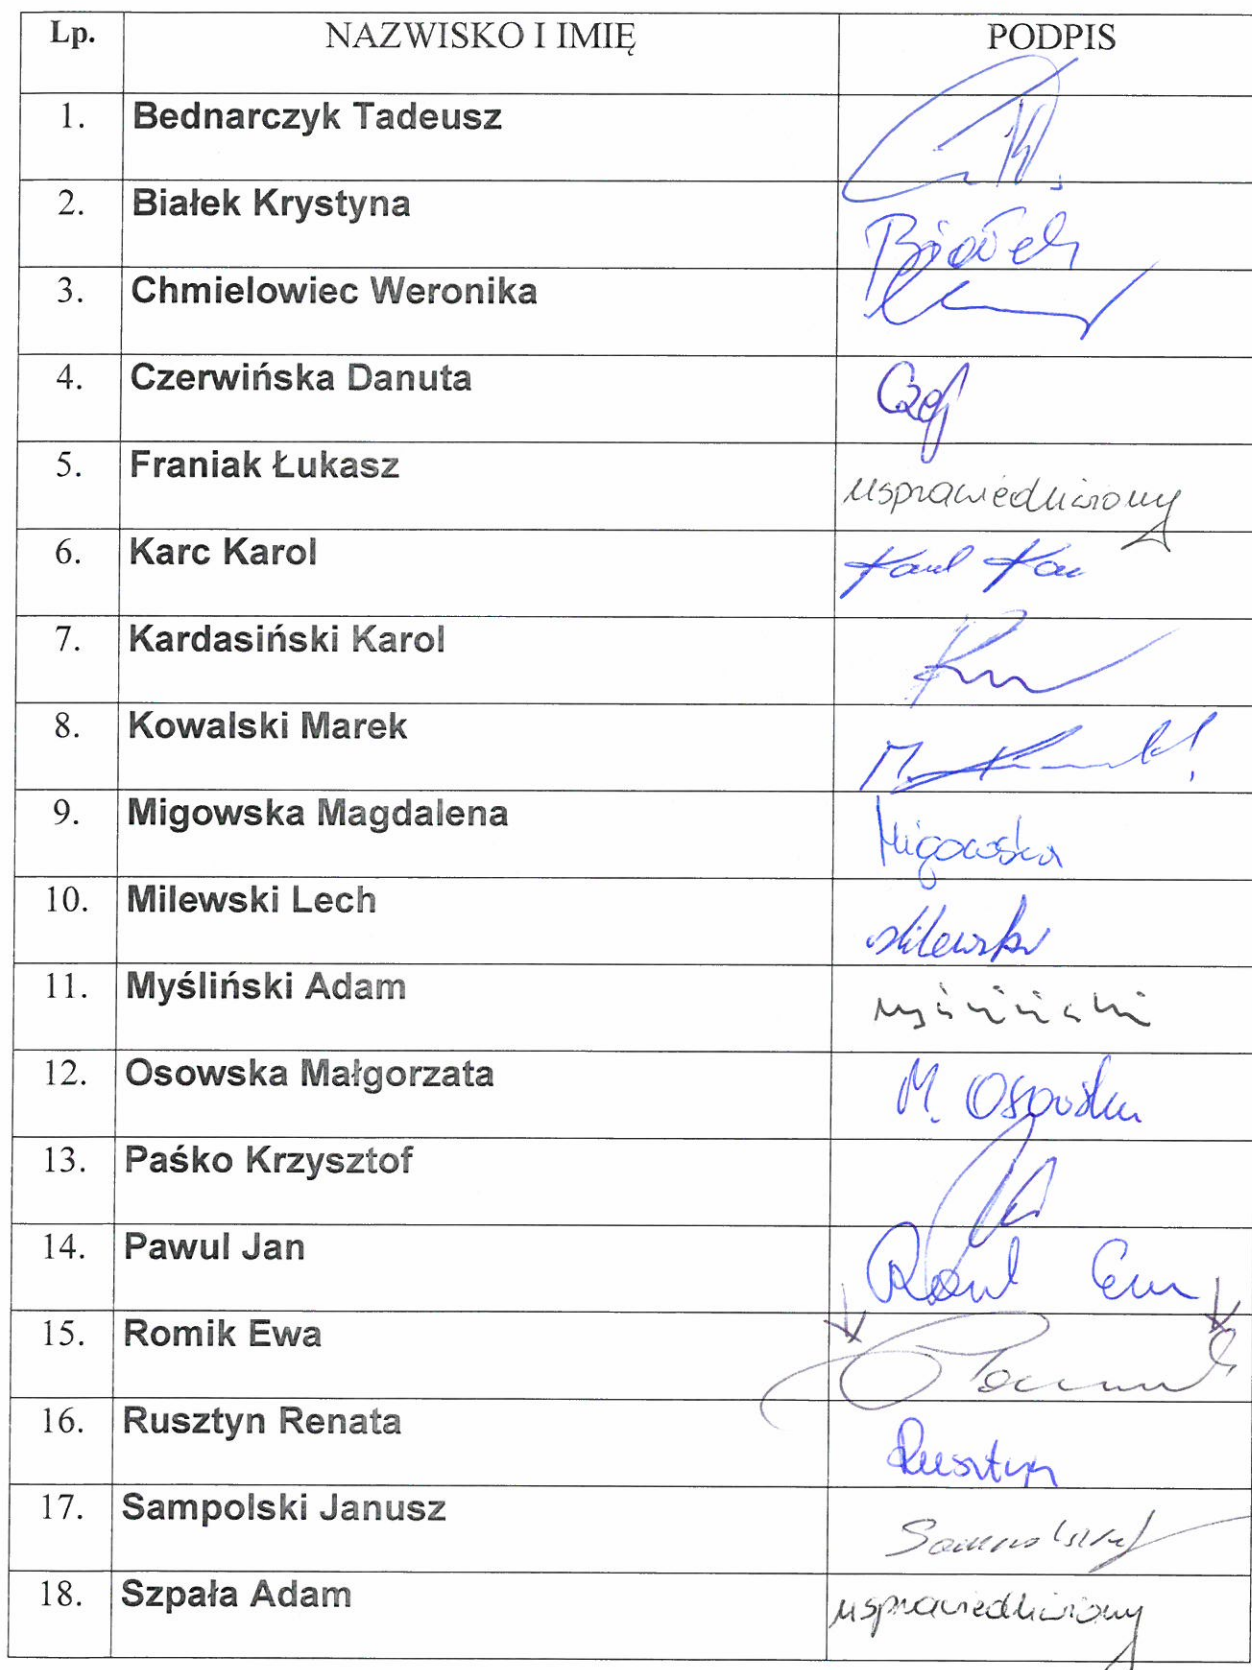 Lp. NAZWISKO I IMIĘ PODPIS
1. Bednarczyk Tadeusz
2. Białek Krystyna Białek
3. Chmielowiec Weronika
4. Czerwińska Danuta
5. Franiak Łukasz usprawiedliwiony
6. Karc Karol Karol
7. Kardasiński Karol
8. Kowalski Marek M.
9. Migowska Magdalena Migowska
10. Milewski Lech Milewski
11. Myśliński Adam Myśliński
12. Osowska Małgorzata M. Osowska
13. Paśko Krzysztof
14. Pawul Jan
15. Romik Ewa
16. Rusztyn Renata Rusztyn
17. Sampolski Janusz Sampolski
18. Szpała Adam usprawiedliwiony